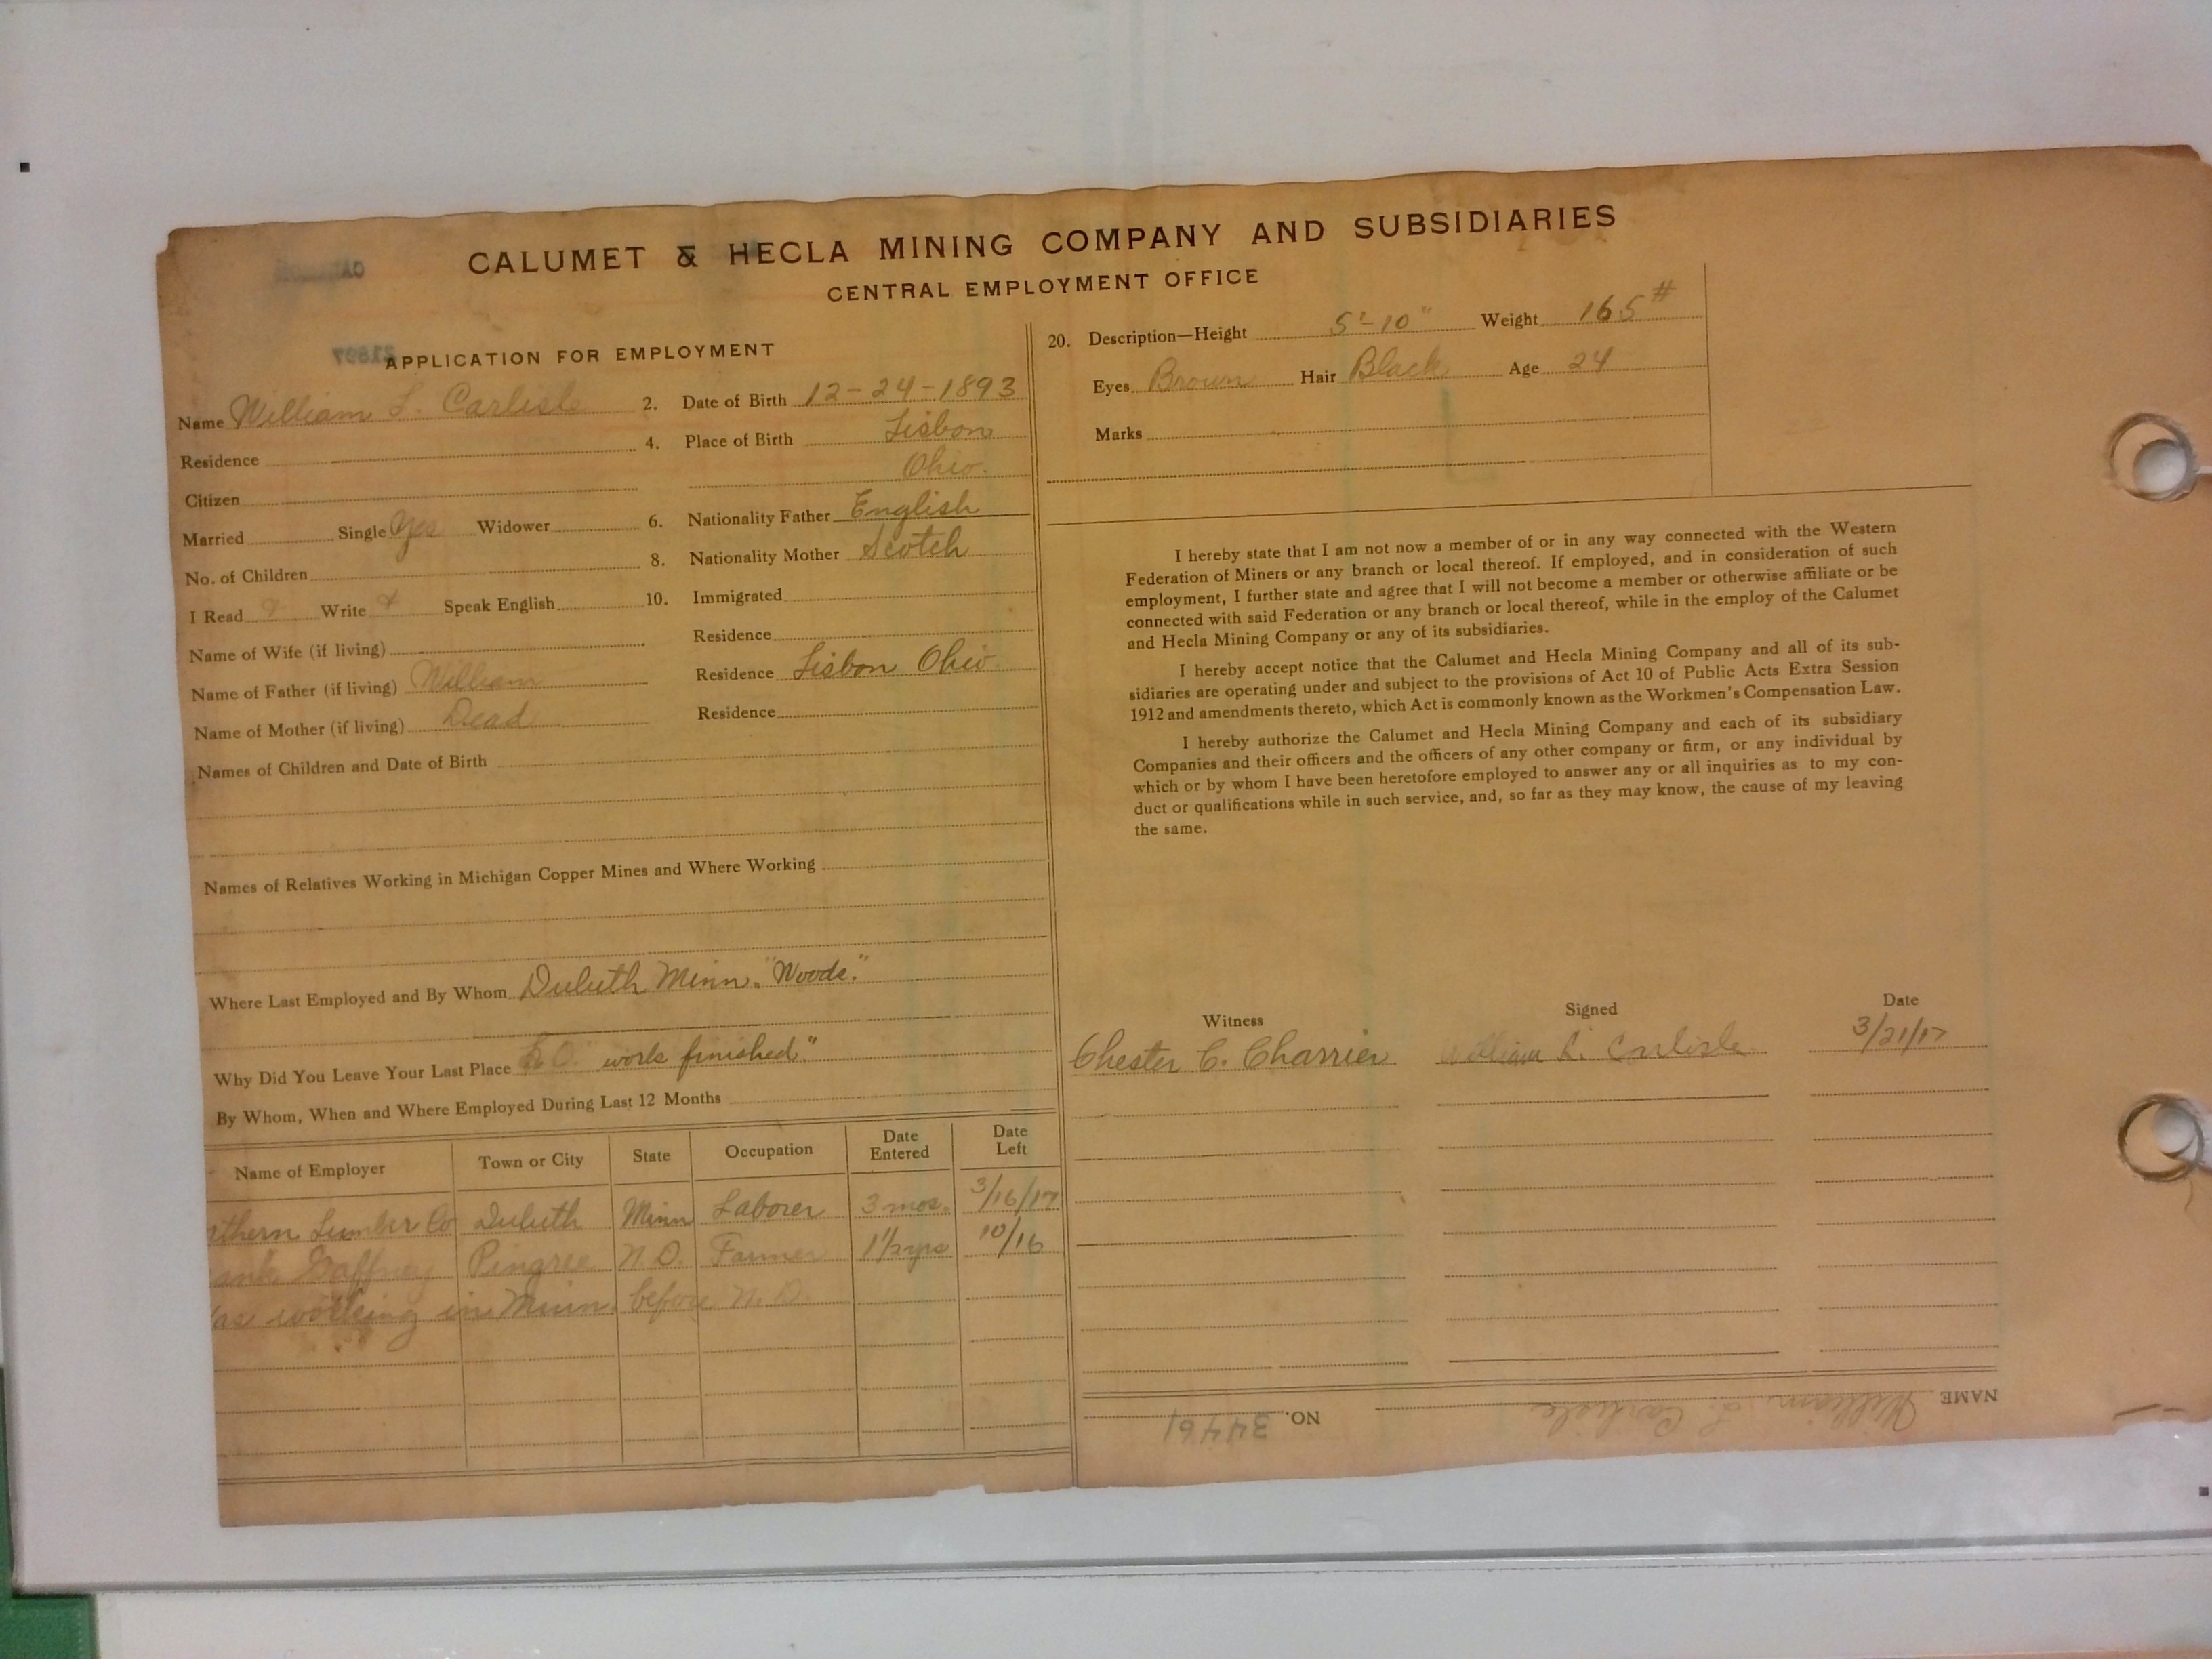 CALUMET & HECLA MINING COMPANY AND SUBSIDIARIES
CENTRAL EMPLOYMENT OFFICE
21897
APPLICATION FOR EMPLOYMENT
Name William L. Carlisle
2. Date of Birth 12-24-1893
Residence
4. Place of Birth Lisbon
Ohio.
Citizen
Married Single Yes Widower
6. Nationality Father English
No. of Children
8. Nationality Mother Scotch
I Read Write Speak English
10. Immigrated
Name of Wife (if living)
Residence
Name of Father (if living) William
Residence Lisbon Ohio
Name of Mother (if living) Dead
Residence
Names of Children and Date of Birth
Names of Relatives Working in Michigan Copper Mines and Where Working
Where Last Employed and By Whom Duluth Minn. "Woods."
Why Did You Leave Your Last Place work finished"
By Whom, When and Where Employed During Last 12 Months
Name of Employer Town or City State Occupation Date Entered Date Left
thern Lumber Co Duluth Minn Laborer 3 mos. 3/16/17
ank Gaffney Pingree N.D. Farmer 1½ yrs 10/16
as working in Minn. before N.D.
20. Description—Height 5'-10" Weight 165#
Eyes Brown Hair Black Age 24
Marks
I hereby state that I am not now a member of or in any way connected with the Western
Federation of Miners or any branch or local thereof. If employed, and in consideration of such
employment, I further state and agree that I will not become a member or otherwise affiliate or be
connected with said Federation or any branch or local thereof, while in the employ of the Calumet
and Hecla Mining Company or any of its subsidiaries.
I hereby accept notice that the Calumet and Hecla Mining Company and all of its sub-
sidiaries are operating under and subject to the provisions of Act 10 of Public Acts Extra Session
1912 and amendments thereto, which Act is commonly known as the Workmen's Compensation Law.
I hereby authorize the Calumet and Hecla Mining Company and each of its subsidiary
Companies and their officers and the officers of any other company or firm, or any individual by
which or by whom I have been heretofore employed to answer any or all inquiries as to my con-
duct or qualifications while in such service, and, so far as they may know, the cause of my leaving
the same.
Witness Signed Date
Chester C. Charrier William L. Carlisle 3/21/17
NAME William L. Carlisle NO. 34461